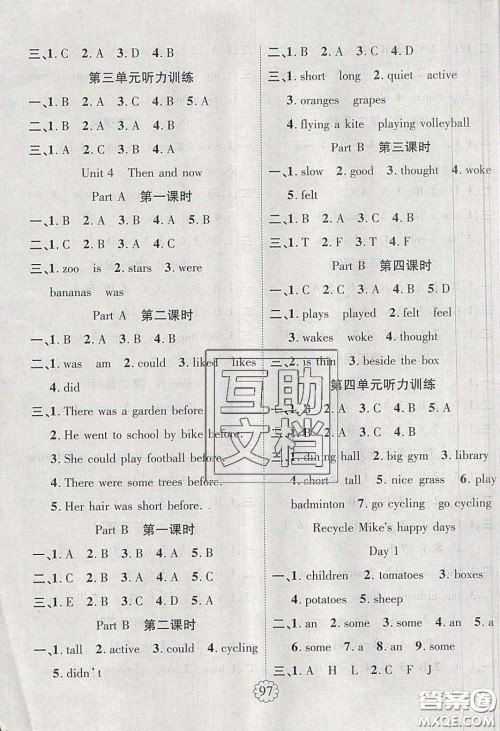 三、1. C 2. A 3. A 4. B
第三单元听力训练
一、1. B 2. A 3. B 4. B 5. A
二、1. B 2. A 3. A 4. B
三、1. A 2. B 3. B 4. A
Unit 4 Then and now
Part A 第一课时
一、1. B 2. A 3. A 4. A 5. B
二、1. C 2. A 3. B 4. B
三、1. zoo is 2. stars 3. were
bananas was
Part A 第二课时
二、1. was am 2. could 3. liked likes
4. did
三、1. There was a garden before.
2. He went to school by bike before.
3. She could play football before.
4. There were some trees before.
5. Her hair was short before.
Part B 第一课时
一、1. A 2. B 3. A 4. A 5. B
二、1. A 2. B 3. C 4. B
三、1. E 2. B 3. C 4. A 5. D
Part B 第二课时
一、1. tall 2. active 4. could 4. cycling
5. didn't
二、1. B 2. A 3. C 4. B
三、1. short long 2. quiet active
3. oranges grapes
4. flying a kite playing volleyball
Part B 第三课时
一、1. slow 2. good 3. thought 4. woke
5. felt
二、1. B 2. A 3. C 4. B
三、1. T 2. T 3. F 4. F
Part B 第四课时
二、1. plays played 2. felt feel
3. wakes woke 4. thought
三、2. is thin 3. beside the box
第四单元听力训练
一、1.
二、1.
三、1. dining hall 2. big gym 3. library
4. short 5. nice grass 6. play
badminton 7. go cycling go cycling
Recycle Mike's happy days
Day 1
一、1. children 2. tomatoes 3. boxes
4. potatoes 5. sheep
二、1. an 2. some 3. some 4. an 5. a
6. some 7. some 8. an 9. a 10. some
三、1. B 2. B 3. A 4. C 5. A
97
互助
文档
答案圈
MXQE.COM